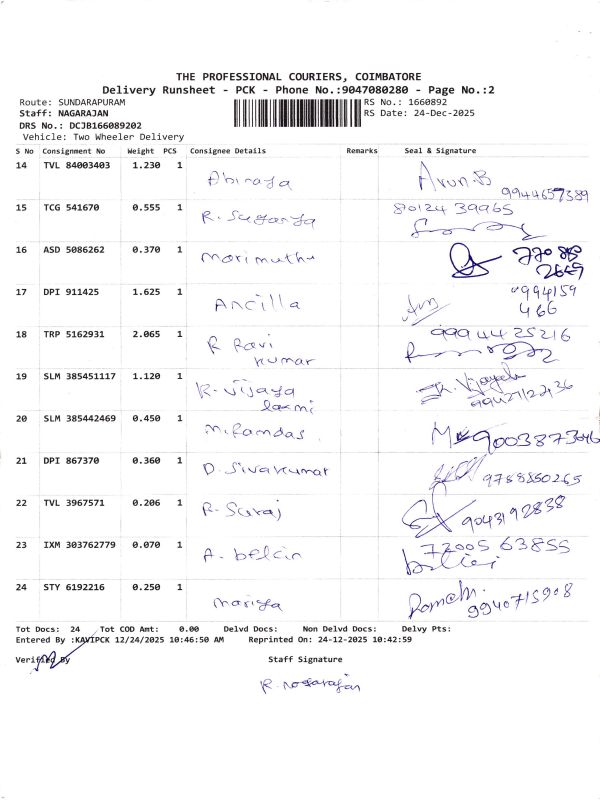 THE PROFESSIONAL COURIERS, COIMBATORE
Delivery Runsheet - PCK - Phone No.:9047080280 - Page No.:2
Route: SUNDARAPURAM RS No.: 1660892
Staff: NAGARAJAN RS Date: 24-Dec-2025
DRS No.: DCJB166089202
Vehicle: Two Wheeler Delivery
S No Consignment No Weight PCS Consignee Details Remarks Seal & Signature
14 TVL 84003403 1.230 1 Abiraya Arun.B 9944657389
15 TCG 541670 0.555 1 R. Suganya 80124 39965
16 ASD 5086262 0.370 1 marimuthu
17 DPI 911425 1.625 1 Ancilla 9994159
466
18 TRP 5162931 2.065 1 R Ravi 999 44 25216
kumar
19 SLM 385451117 1.120 1 K. Vijaya
laxmi
20 SLM 385442469 0.450 1 M. Ramdas 9003873046
21 DPI 867370 0.360 1 D. Sivakumar 9789850265
22 TVL 3967571 0.206 1 R. Suraj 9043192838
23 IXM 303762779 0.070 1 A. belcin 72005 63855
24 STY 6192216 0.250 1 mariya 9940715908
Tot Docs: 24 Tot COD Amt: 0.00 Delvd Docs: Non Delvd Docs: Delvy Pts:
Entered By :KAVIPCK 12/24/2025 10:46:50 AM Reprinted On: 24-12-2025 10:42:59
Verified By Staff Signature
R. nagarajan